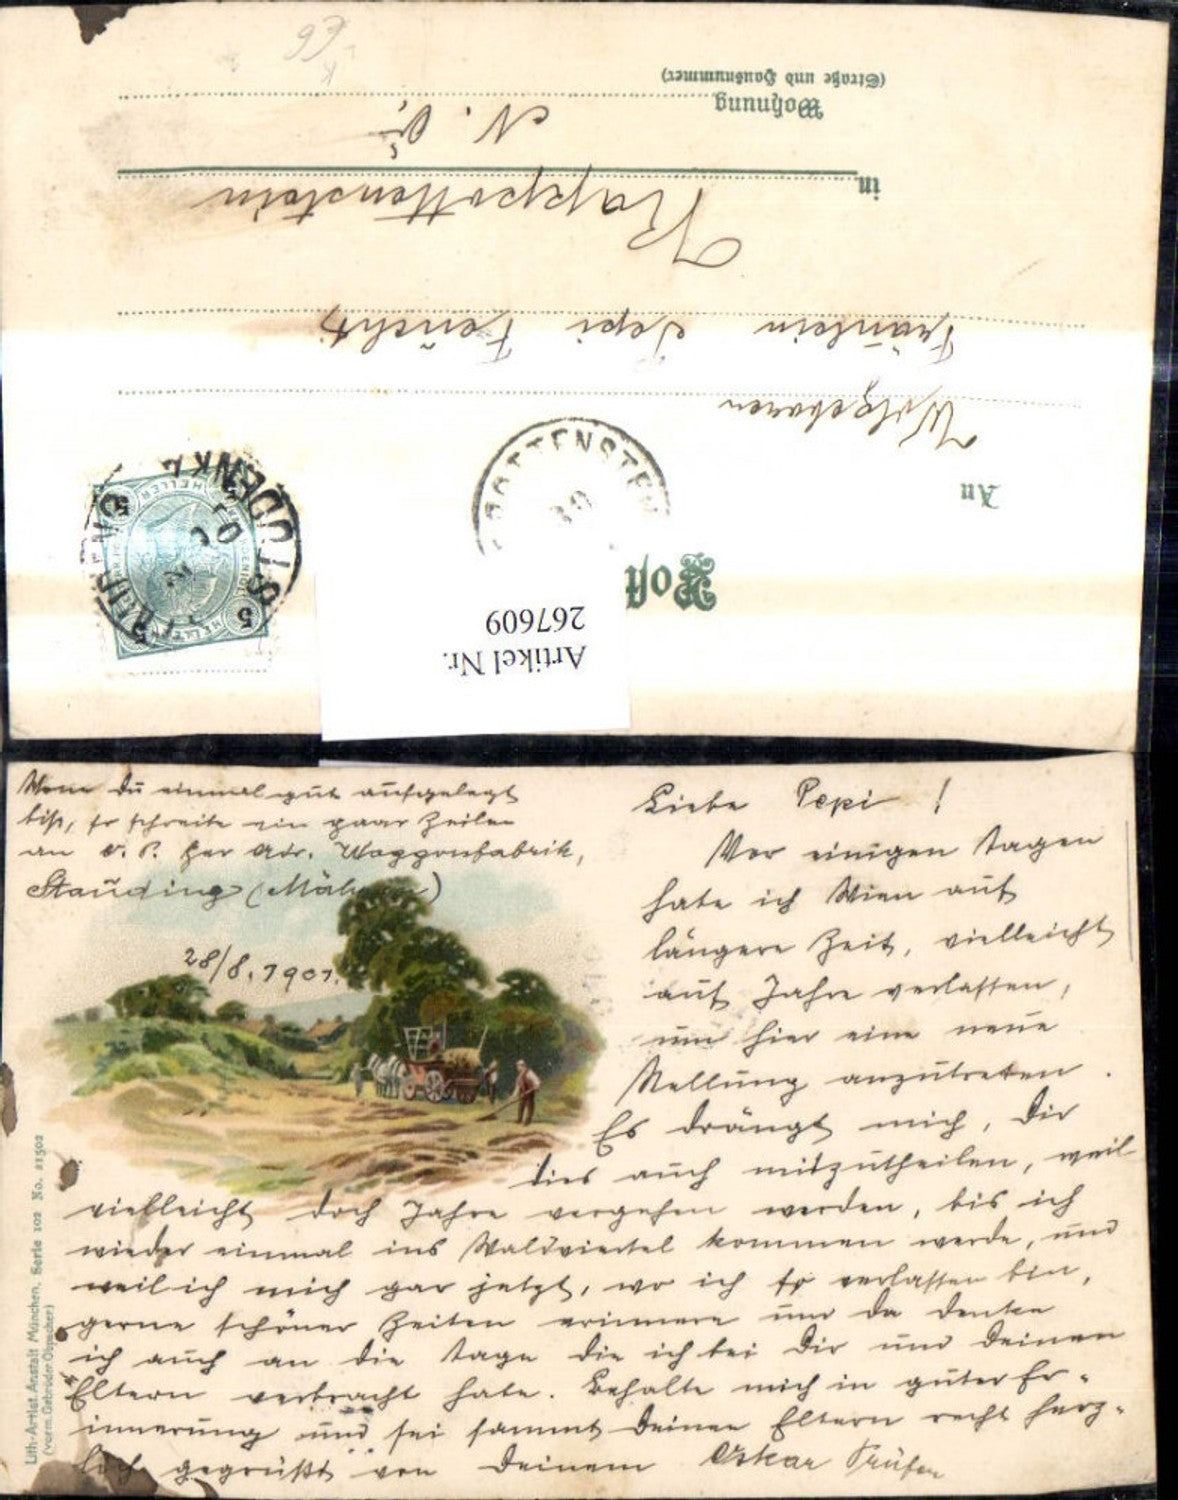 (Straße und Hausnummer)
Wohnung
N. Ö.
in
Rappottenstein
Fräulein Pepi Feucht
Wolgeboren
An
Post
Artikel Nr.
267609
5 HELLER 5
Wenn Du einmal gut aufgelegt
bist, so schreibe ein paar Zeilen
an O. P. per Adr. Waggonfabrik,
Stauding (Mähren)
28/8. 1901.
Liebe Pepi !
Vor einigen Tagen
habe ich Wien auf
längere Zeit, vielleicht
auf Jahre verlassen,
um hier eine neue
Stellung anzutreten.
Es drängt mich, Dir
dies auch mitzutheilen, weil
vielleicht doch Jahre vergehen werden, bis ich
wieder einmal ins Waldviertel kommen werde, und
weil ich mich gar jetzt, wo ich so verlassen bin,
gerne schöner Zeiten erinnere und da denke
ich auch an die Tage die ich bei Dir und Deinen
Eltern verbracht habe. Behalte mich in guter Er-
innerung und sei sammt Deinen Eltern recht herz-
lich gegrüßt von Deinem Oskar Prüfer
Lith.-Artist. Anstalt München. Serie 102 No. 21502
(vorm. Gebrüder Obpacher)